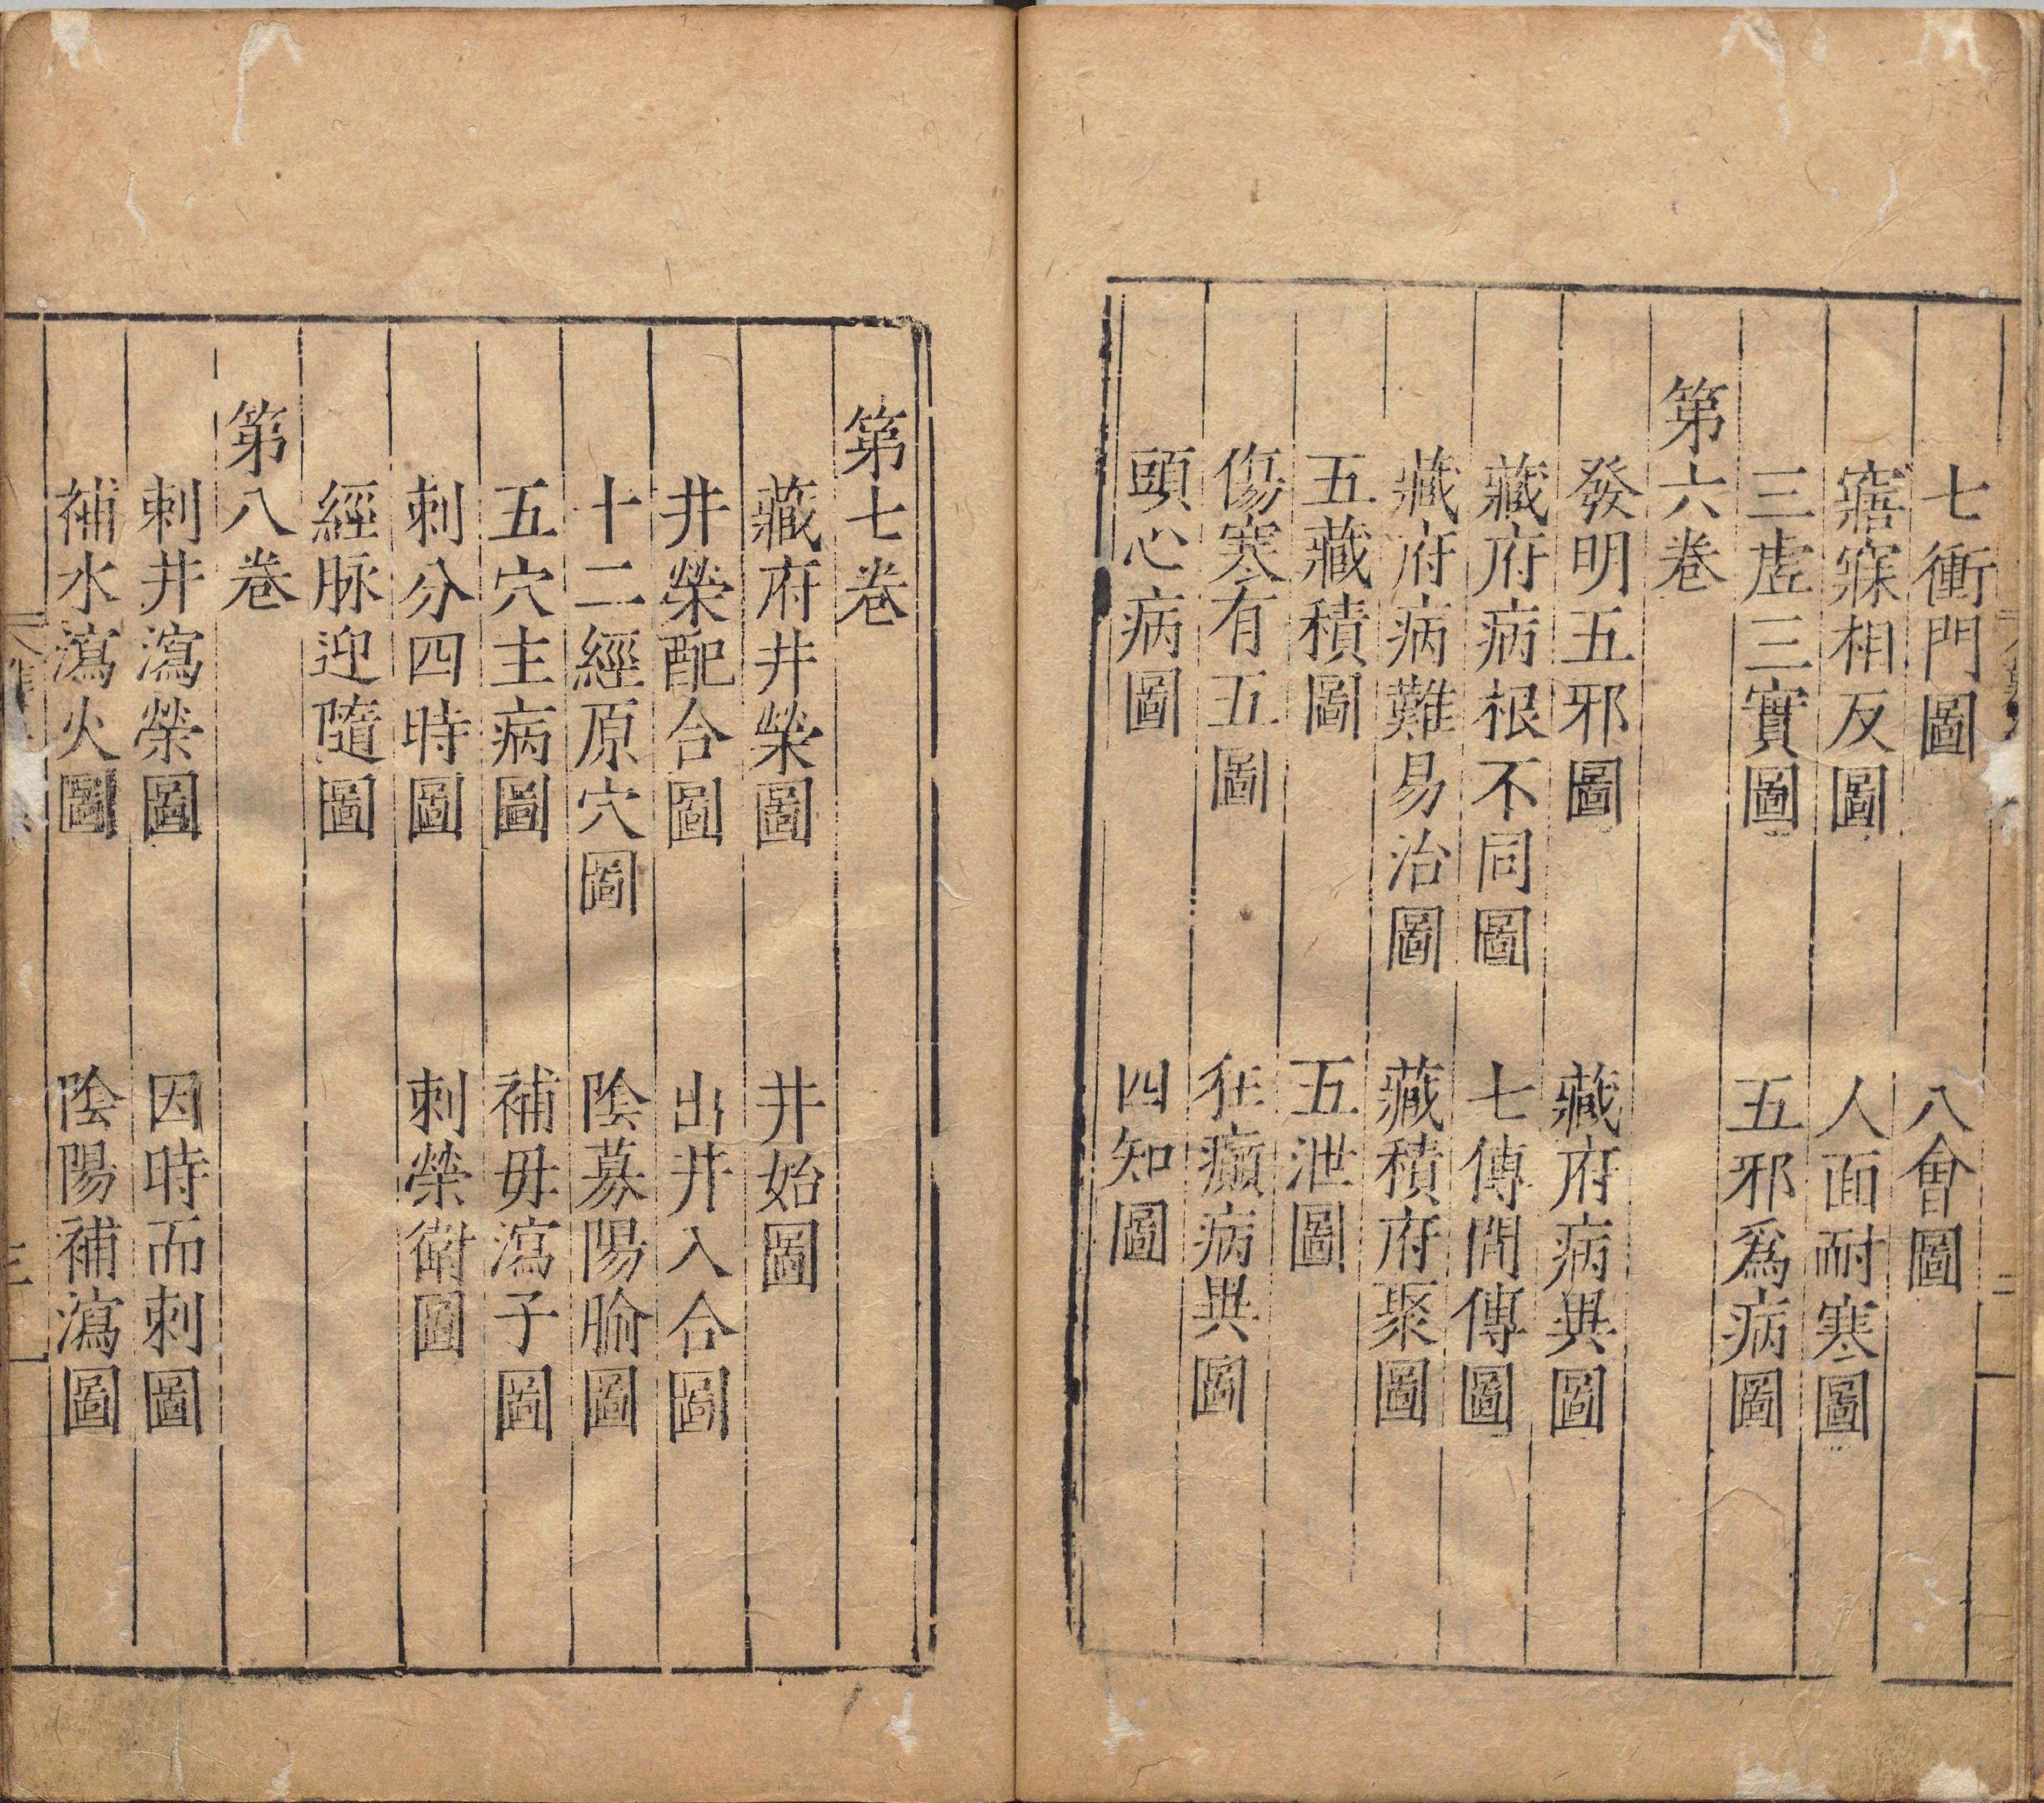 七衝門圖　八會圖
寤寐相反圖　人面耐寒圖
三虛三實圖　五邪爲病圖
第六卷
發明五邪圖　藏府病異圖
藏府病根不同圖　七傳間傳圖
藏府病難易治圖　藏積府聚圖
五藏積圖　五泄圖
傷寒有五圖　狂癲病異圖
頭心病圖　四知圖
第七卷
藏府井榮圖　井始圖
井榮配合圖　出井入合圖
十二經原穴圖　陰募陽腧圖
五穴主病圖　補毋瀉子圖
刺分四時圖　刺榮衛圖
經脉迎隨圖
第八卷
刺井瀉榮圖　因時而刺圖
補水瀉火圖　陰陽補瀉圖